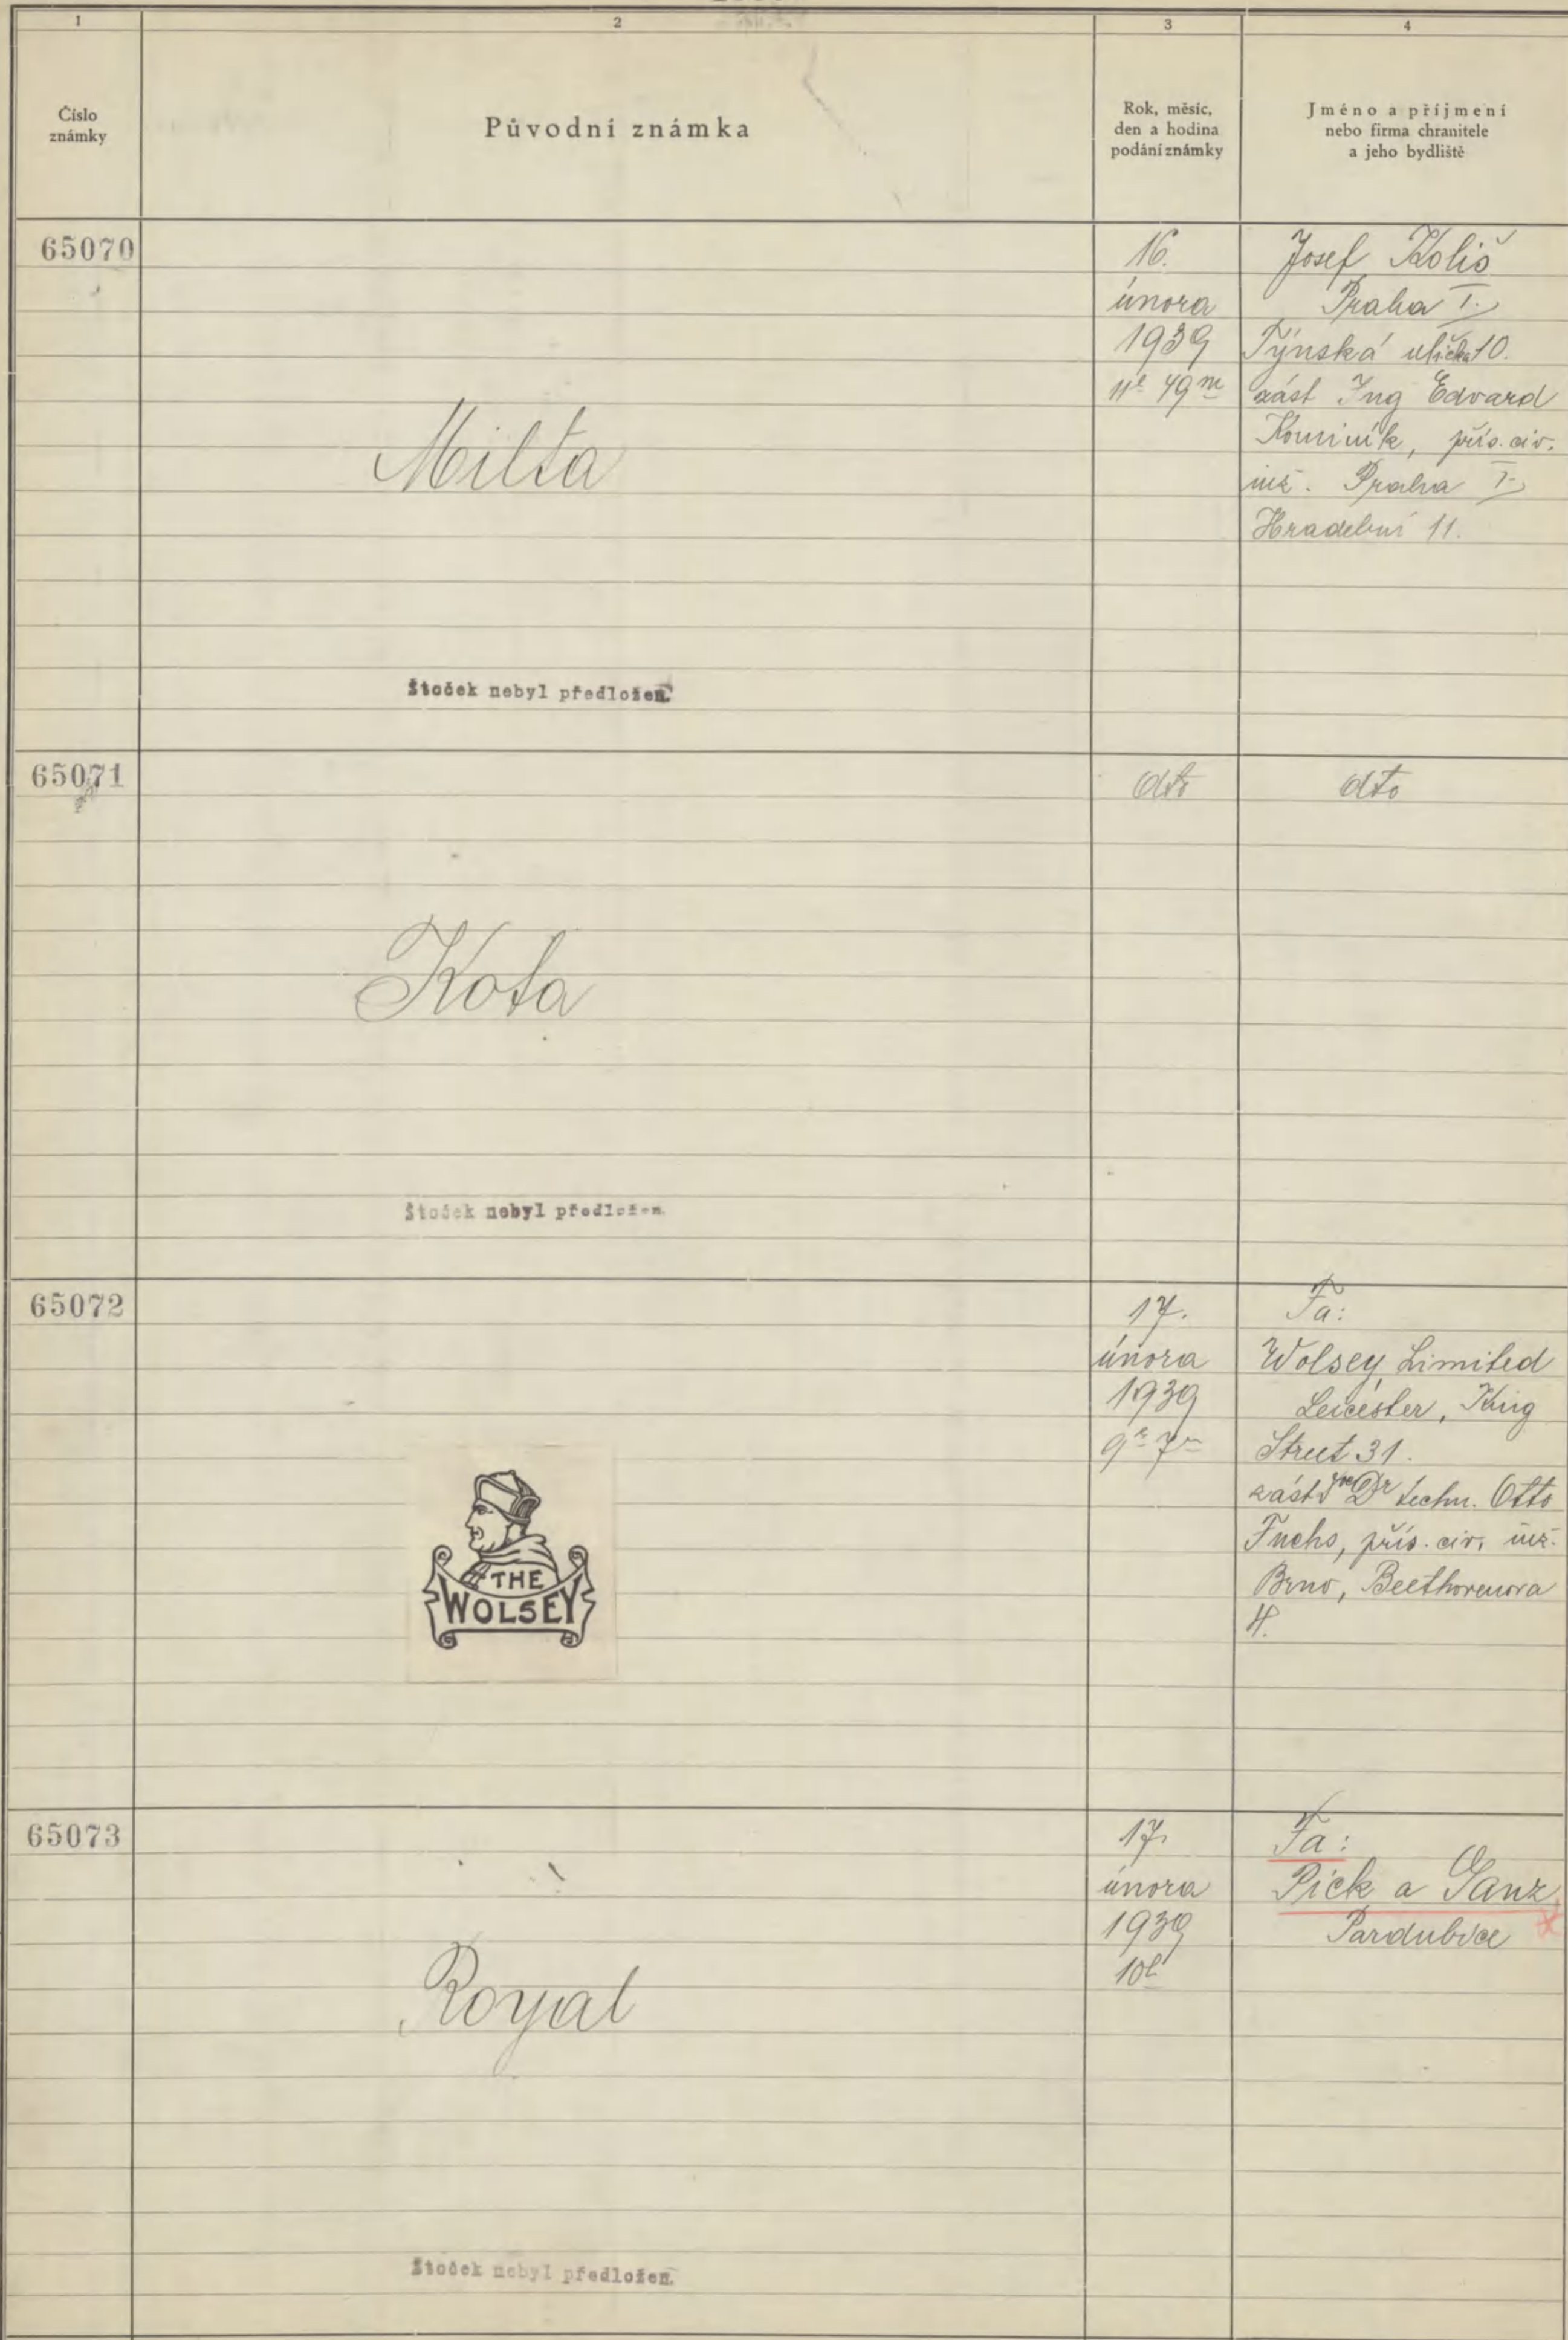 1
2
3
4
Číslo
známky
Původní známka
Rok, měsíc,
den a hodina
podání známky
Jméno a příjmení
nebo firma chranitele
a jeho bydliště
65070
Milta
Štoček nebyl předložen.
16.
února
1939
11h 49m
Josef Koliš
Praha I.
Týnská ulička 10.
zást Ing Edvard
Kominík, přís. civ.
inž. Praha I.
Hradební 11.
65071
Kota
Štoček nebyl předložen.
dto
dto
65072
THE
WOLSEY
17.
února
1939
9h 7m
Fa:
Wolsey Limited
Leicester, King
Street 31.
zást Dr techn. Otto
Fuchs, přís. civ. inž.
Brno, Beethovenova
4.
65073
Royal
Štoček nebyl předložen.
17.
února
1939
10h
Fa:
Pick a Ganz
Pardubice